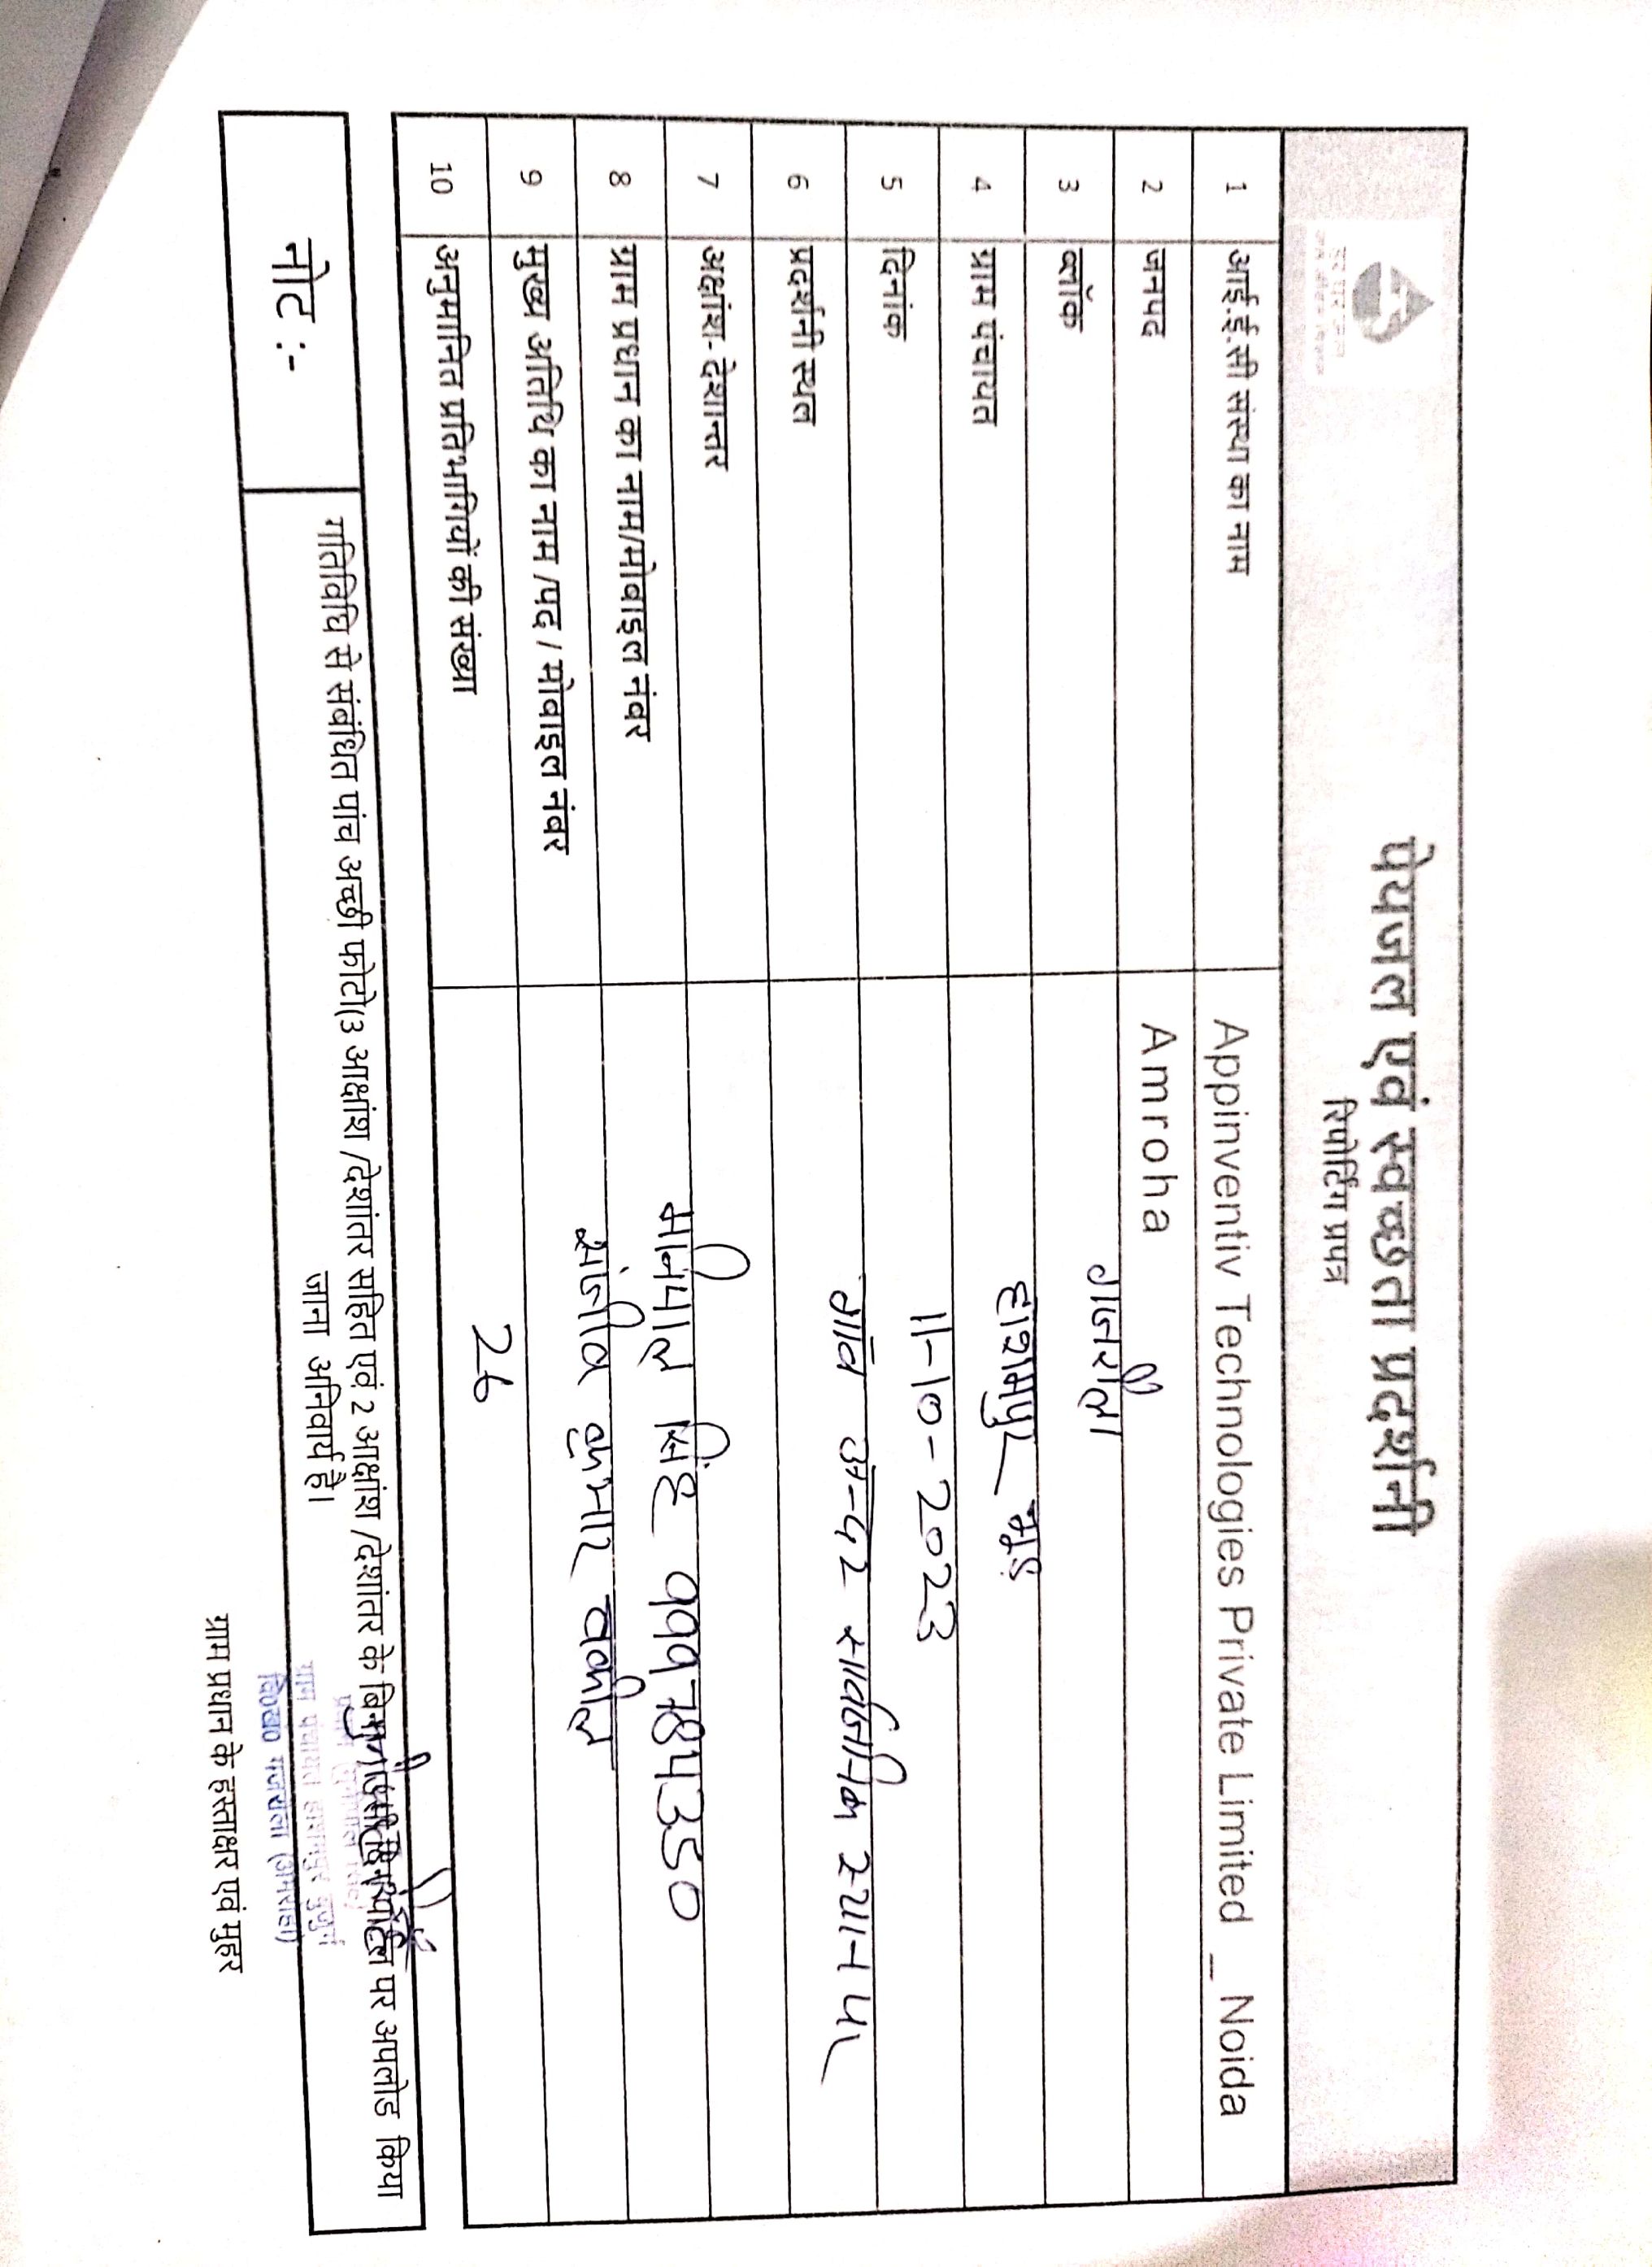 पेयजल एवं स्वच्छता प्रदर्शनी
रिपोर्टिंग प्रपत्र
1 आई.ई.सी संस्था का नाम Appinventiv Technologies Private Limited _ Noida
2 जनपद Amroha
3 ब्लॉक गजरौला
4 ग्राम पंचायत हाशमपुर
5 दिनांक 11-10-2023
6 प्रदर्शनी स्थल गाँव के अन्दर सार्वजनिक स्थान पर
7 अक्षांश- देशान्तर
8 ग्राम प्रधान का नाम/मोबाइल नंबर सिंह
9 मुख्य अतिथि का नाम /पद / मोबाइल नंबर कुमार वकील
10 अनुमानित प्रतिभागियों की संख्या 26
नोट :- गतिविधि से संबंधित पांच अच्छी फोटो(3 आक्षांश /देशांतर सहित एवं 2 आक्षांश /देशांतर के पर अपलोड किया
जाना अनिवार्य है।
ग्राम पंचायत
वि०ख० गजरौला (अमरोहा)
ग्राम प्रधान के हस्ताक्षर एवं मुहर